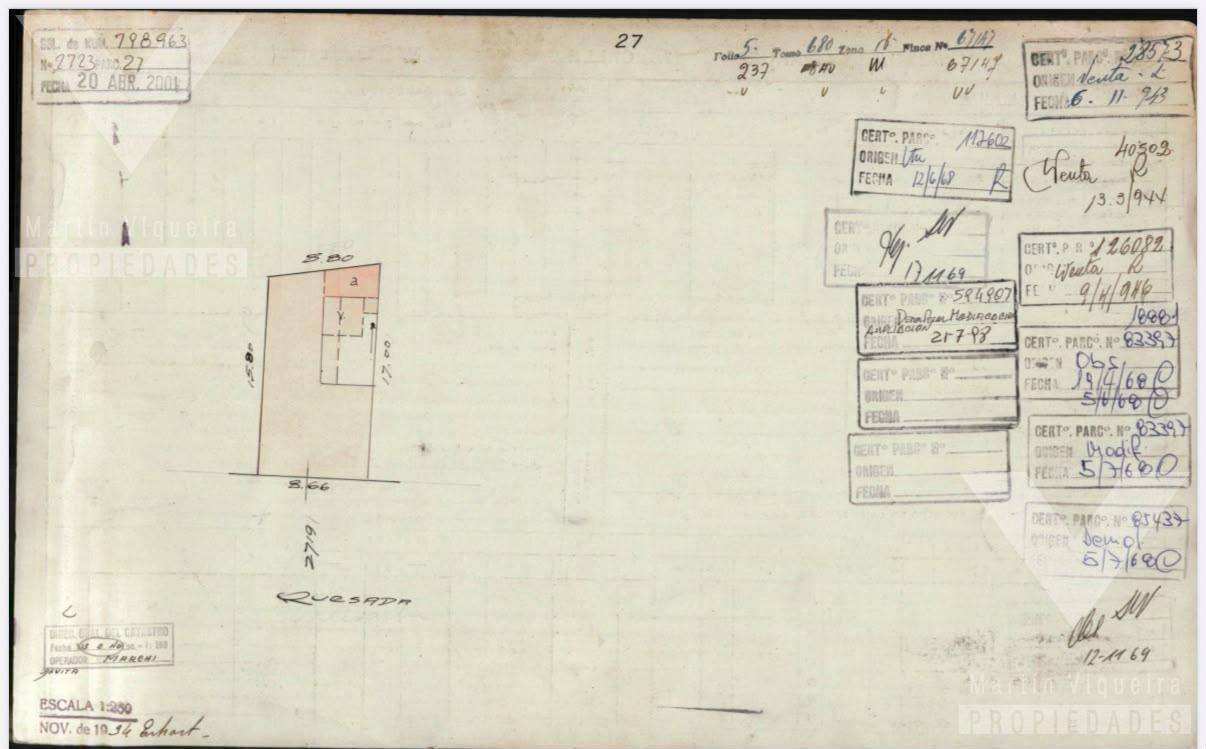 27
SOL. de NUM. 798963
Nº 2723 PARC. 27
FECHA 20 ABR. 2001
Folio 5. Tomo 680 Zona N. Finca Nº 67147
237 M 67147
CERTº. PARCº. Nº 28573
ORIGEN Venta - L
FECHA 6 - 11 - 943
40502
Venta R
13.3/944
CERTº. PARCº. 117602
ORIGEN Vta
FECHA 12/6/68 R
CERTº. P R º 126082
Venta R
9/4/946
17 11 69
CERTº PARCº Nº 594907
ORIGEN Dem Parc Modificacion
Ampliacion
FECHA 21-7-98
18881
CERTº. PARCº. Nº 83397
Obs.
FECHA 19/4/68
5/6/68
CERTº PARCº Nº
ORIGEN
FECHA
CERTº. PARCº. Nº 83397
ORIGEN Modif.
FECHA 5/7/68
CERTº PARCº Nº
ORIGEN
FECHA
CERTº. PARCº. Nº 85437
ORIGEN Demol.
5/7/68
12-11 69
8.80
a
15.80
17.00
8.66
2719
QUESADA
DIREC. GRAL. DEL CATASTRO
OPERADOR MARCHI
ESCALA 1:250
NOV. de 1934
Martin Viqueira
PROPIEDADES
Martin Viqueira
PROPIEDADES